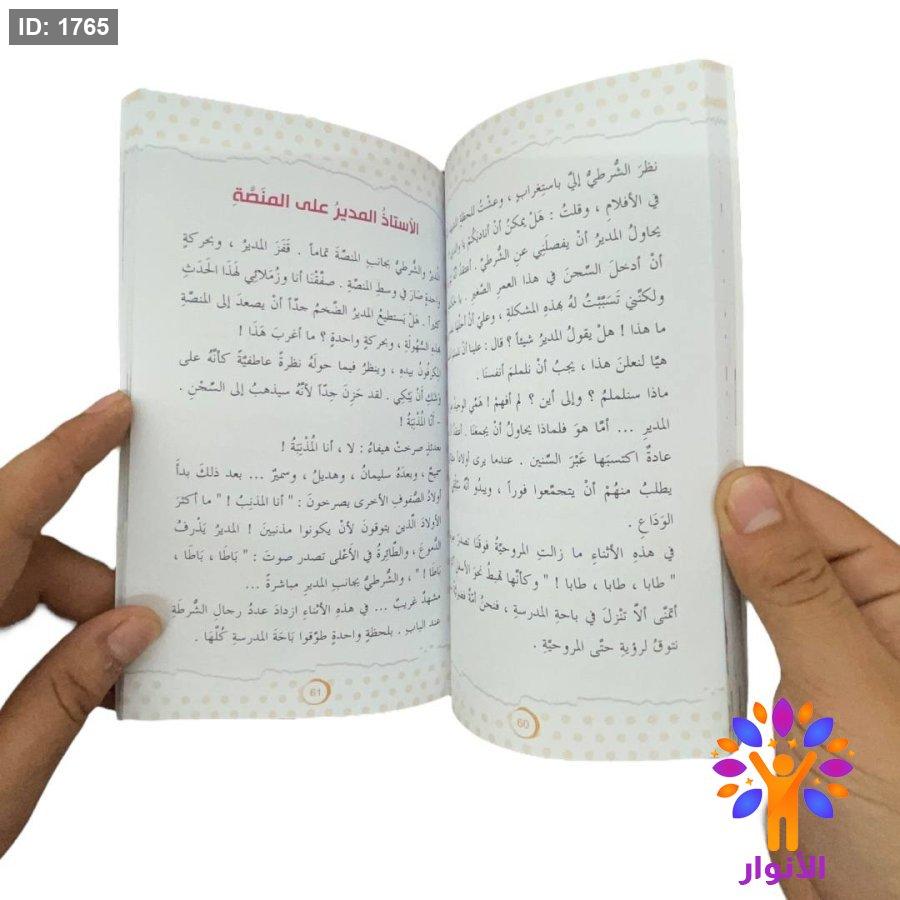 ID: 1765
نظرَ الشُّرطيُّ إليَّ باستغرابٍ ، وعشْتُ للحظةٍ
في الأفلامِ ، وقلتُ : هَلْ يمكنُ أنْ أناديَكُمْ
يحاولُ المديرُ أنْ يفصلَنِي عن الشُّرطيِّ .
أنْ أدخلَ السِّجنَ في هذا العمرِ الصَّغيرِ .
ولكنَّنِي تَسَبَّبْتُ لهُ بهذهِ المشكلةِ ، وعليَّ أنْ
ما هذا ! هلْ يقولُ المديرُ شيئاً ؟ قال : علينا أنْ
هيَّا لنعلنَ هذا ، يجبُ أنْ نلملمَ أنفسنَا .
ماذا سنلملمُ ؟ وإلى أين ؟ لم أفهمْ ! همِّي الوحيدُ
المديرِ ... أمَّا هوَ فلماذا يحاولُ أنْ يجمعَنَا .
عادةٌ اكتسبَها عَبْرَ السِّنين . عندما يرى أولاداً
يطلبُ منهُمْ أنْ يتجمَّعوا فوراً ، ويبدُو أنَّهُ
الوَدَاعِ .
في هذِهِ الأثناءِ ما زالتِ المروحيَّةُ فوقَنَا تصدرُ
" طابا ، طابا ، طابا ! " وكأنَّها تهبطُ نحوَ الأسفلِ
أتمنَّى ألاّ تنْزلَ في باحةِ المدرسةِ ، فنحنُ
نتوقُ لرؤيةِ حتَّى المروحيَّةِ .
60
الأستاذُ المديرُ على المنَصَّةِ
المديرُ والشُّرطيُّ بجانبِ المنصّةَ تماماً . قَفَزَ المديرُ ، وبحركةٍ
واحدةٍ صَارَ في وسطِ المنصَّةِ . صفَّقْنَا أنا وزُمَلائي لهَذَا الحَدَثِ
كثيراً . هَلْ يَستطيعُ المديرُ الضَّخمُ جدّاً أنْ يصعدَ إلى المنصَّةِ
بهذِهِ السُّهُولَةِ ، وبحركةٍ واحدةٍ ؟ ما أغربَ هَذَا !
المكرفُونُ بيدِهِ ، وينظرُ فيما حولَهُ نظرةً عاطفيَّةً كأنَّهُ على
وَشَكِ أنْ يَبْكِي . لقد حَزِنَ جِدّاً لأنَّهُ سيذهبُ إلى السِّجْنِ .
- أنَا المُذْنِبَةُ !
بعدئذٍ صرختْ هيفاءُ : لا ، أنا المُذْنِبَةُ !
سميحٌ ، وبعدَهُ سليمانُ ، وهديلُ ، وسميرٌ ... بعد ذلكَ بدأَ
أولادُ الصُّفوفِ الأخرى يصرخونَ : " أنا المذنِبُ ! " ما أكثرَ
الأولادَ الَّذين يتوقونَ لأنْ يكونوا مذنبينَ ! المديرُ يَذْرفُ
الدُّموعَ ، والطَّائرةُ في الأعْلى تصدرُ صوتَ : " بَاطَا ، بَاطَا ،
بَاطَا ! " ، والشُّرطيُّ بجانبِ المديرِ مباشرةً ...
مشهدٌ غريبٌ ... في هذِهِ الأثناءِ ازدادَ عددُ رجالِ الشُّرطَةِ
عند البابِ . بلحظةٍ واحدةٍ طوَّقوا بَاحَةَ المدرسةِ كُلَّهَا .
61
الأنوار